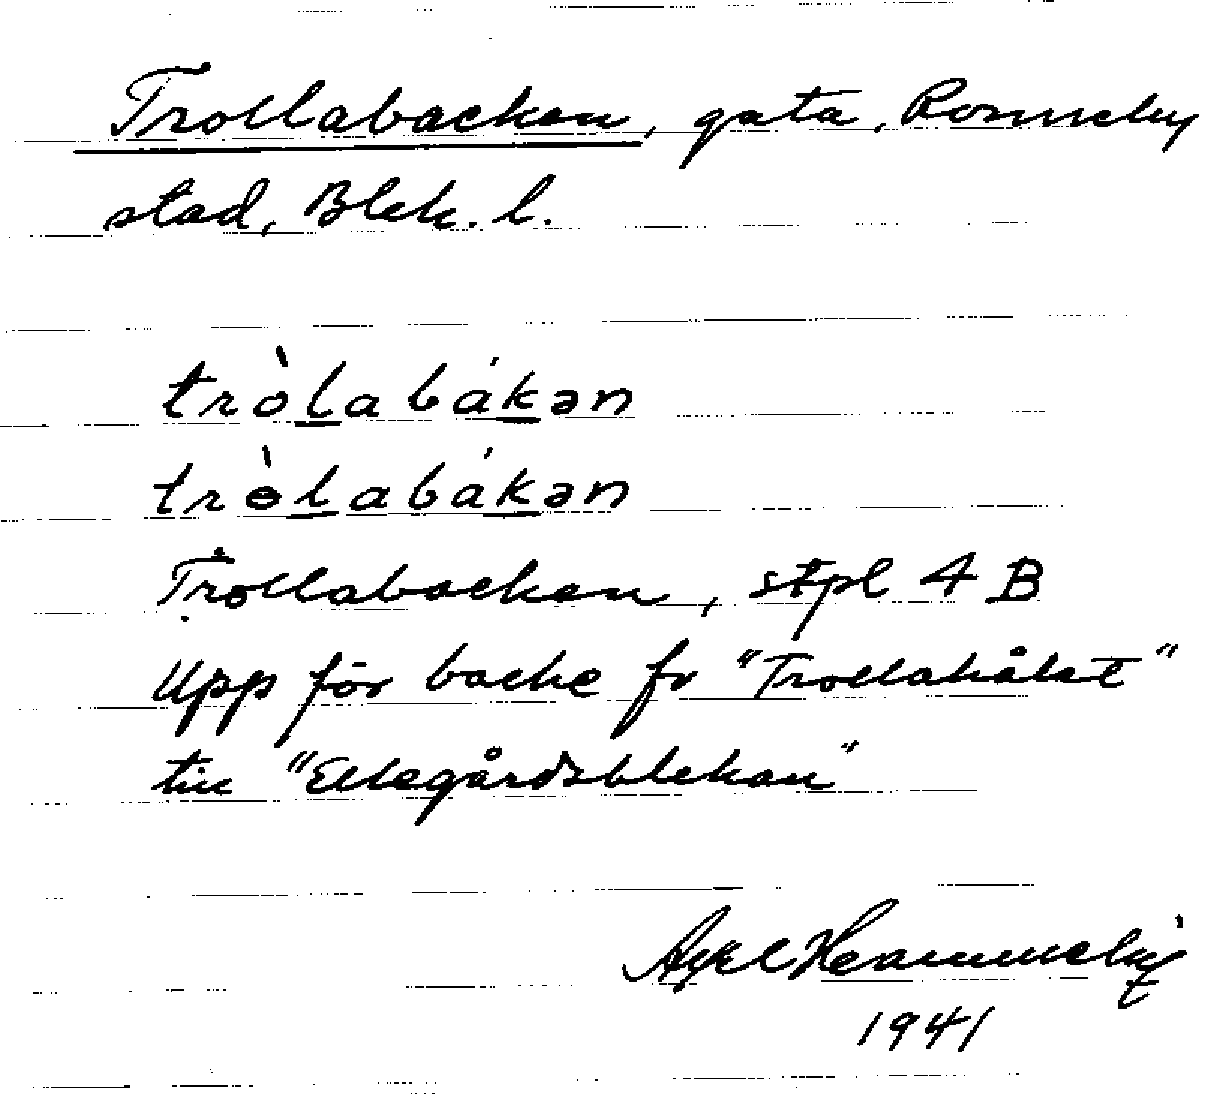 Trollabacken, gata, Ronneby
stad, Blek. l.
tròlabákən
trɵ̀labákən
Trollabacken, stpl 4 B
Upp för backe fr "Trollahålet"
till "Ellegårdsblekan"
Axel
1941